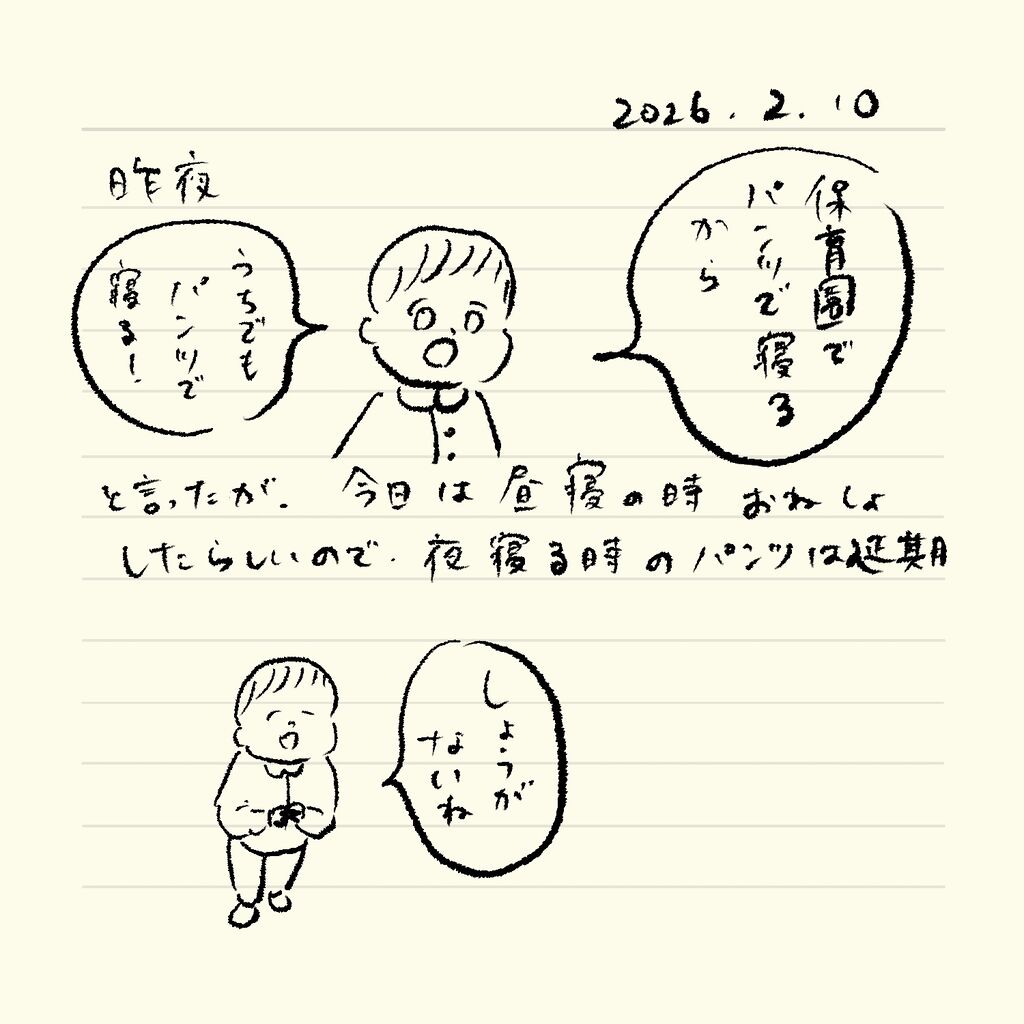 2026.2.10
昨夜
保育園で
パンツで寝る
から
うちでも
パンツで
寝る!
と言ったが、今日は昼寝の時 おねしょ
したらしいので、夜寝る時のパンツは延期
しょうが
ないね